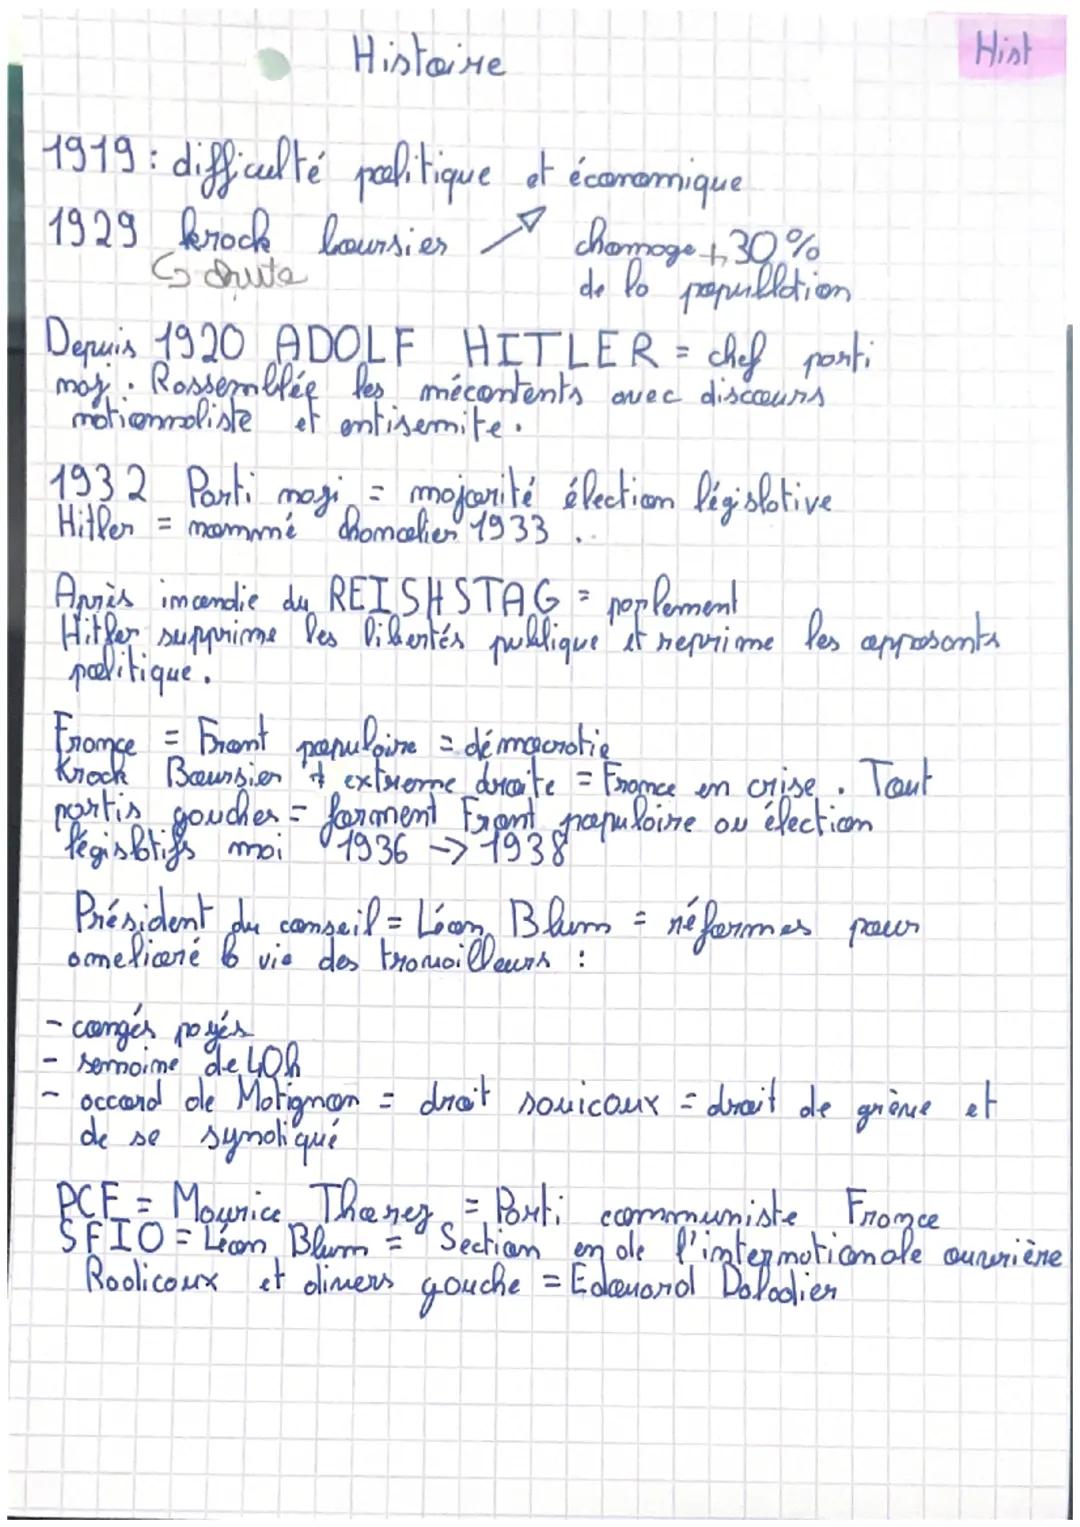 Histoire
Hist
1919 : difficulté politique et économique
1929 krock boursier ↗ chomage + 30%
↳ chute de la popullation
Depuis 1920 ADOLF HITLER = chef parti
nazi. Rassemblée les mécontents avec discours
nationnaliste et antisemite.
1932 Parti nazi = majorité élection législative
Hitler = nommé chancelier 1933 ..
Après incendie du REISHSTAG = parlement
Hitler supprime les libertés publique et reprime les opposants
politique.
France = Front populaire = démocratie
Krack Boursier + extreme droite = France en crise. Tout
partis gauches = forment Front populaire au élection
législatifs mai 1936 → 1938
Président du conseil = Léon Blum = réformes pour
amelioré la vie des travailleurs :
- congés payés
- semaine de 40h
- accord de Matignon = droit souicaux = droit de grève et
de se syndiqué
PCF = Maurice Thorez = Parti communiste France
SFIO = Léon Blum = Section en de l'internationale ouvrière
Radicaux et divers gauche = Edouard Daladier